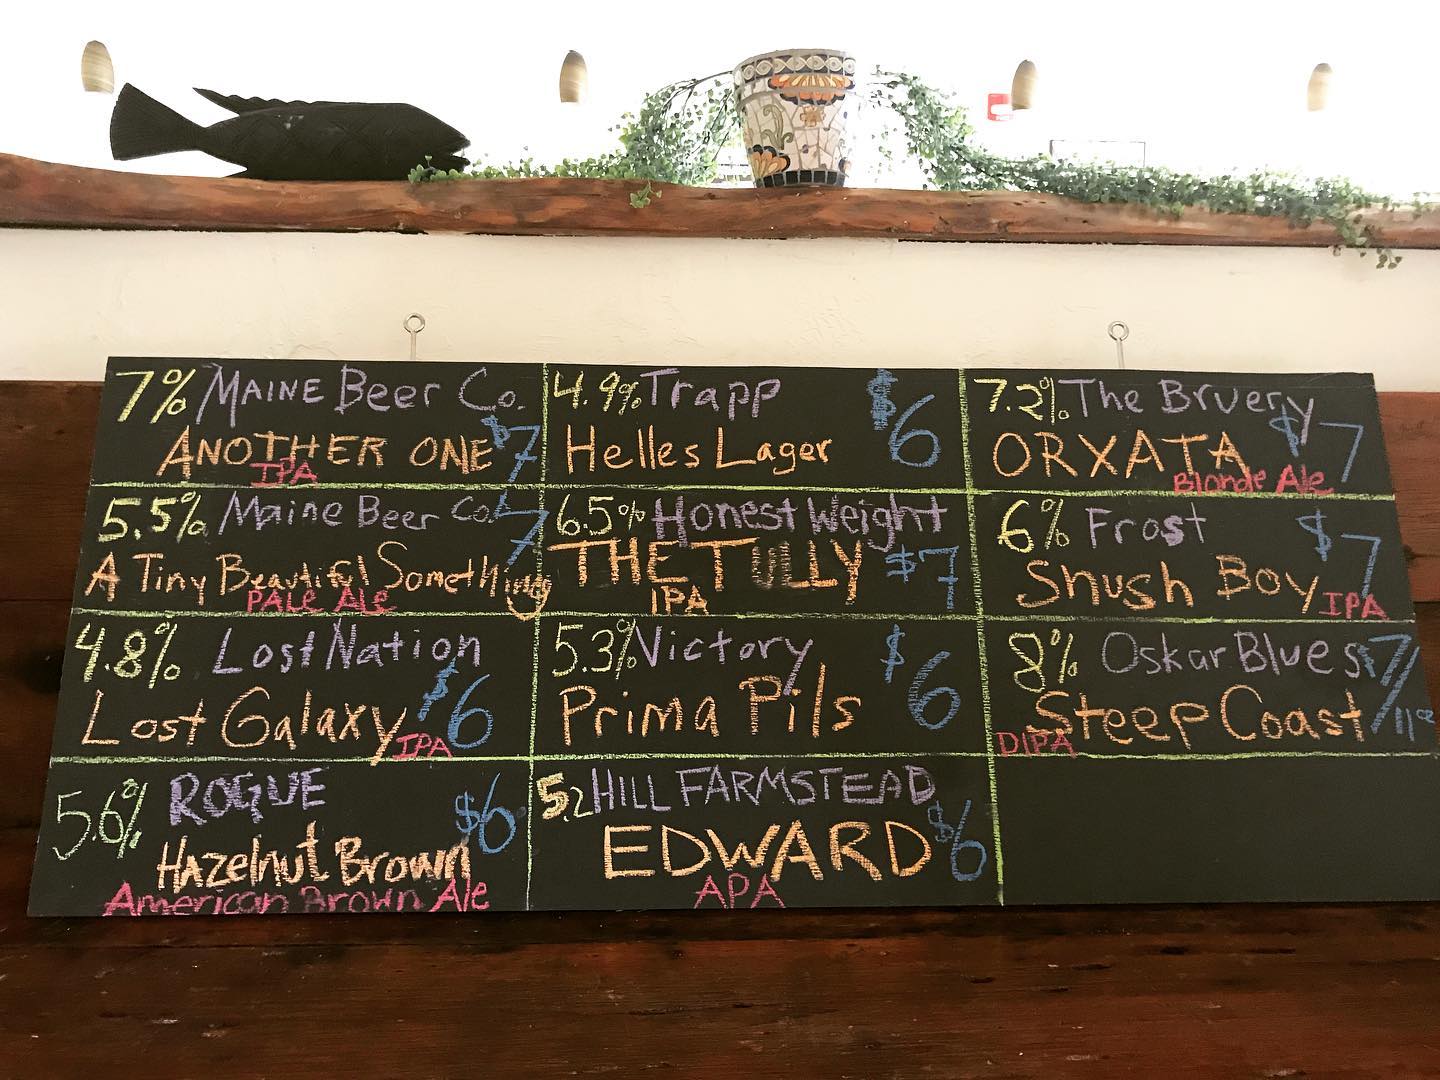 7% MAINE Beer Co.
ANOTHER ONE $7
IPA
4.9% Trapp $6
Helles Lager
7.2% The Bruery
ORXATA $7
Blonde Ale
5.5% Maine Beer Co. $7
A Tiny Beautiful Something
PALE Ale
6.5% Honest Weight
THE TULLY $7
IPA
6% Frost $7
Shush Boy IPA
4.8% Lost Nation
Lost Galaxy $6
IPA
5.3% Victory $6
Prima Pils
8% Oskar Blues $7/11oz
Steep Coast
DIPA
5.6% ROGUE $6
Hazelnut Brown
American Brown Ale
5.2 HILL FARMSTEAD
EDWARD $6
APA